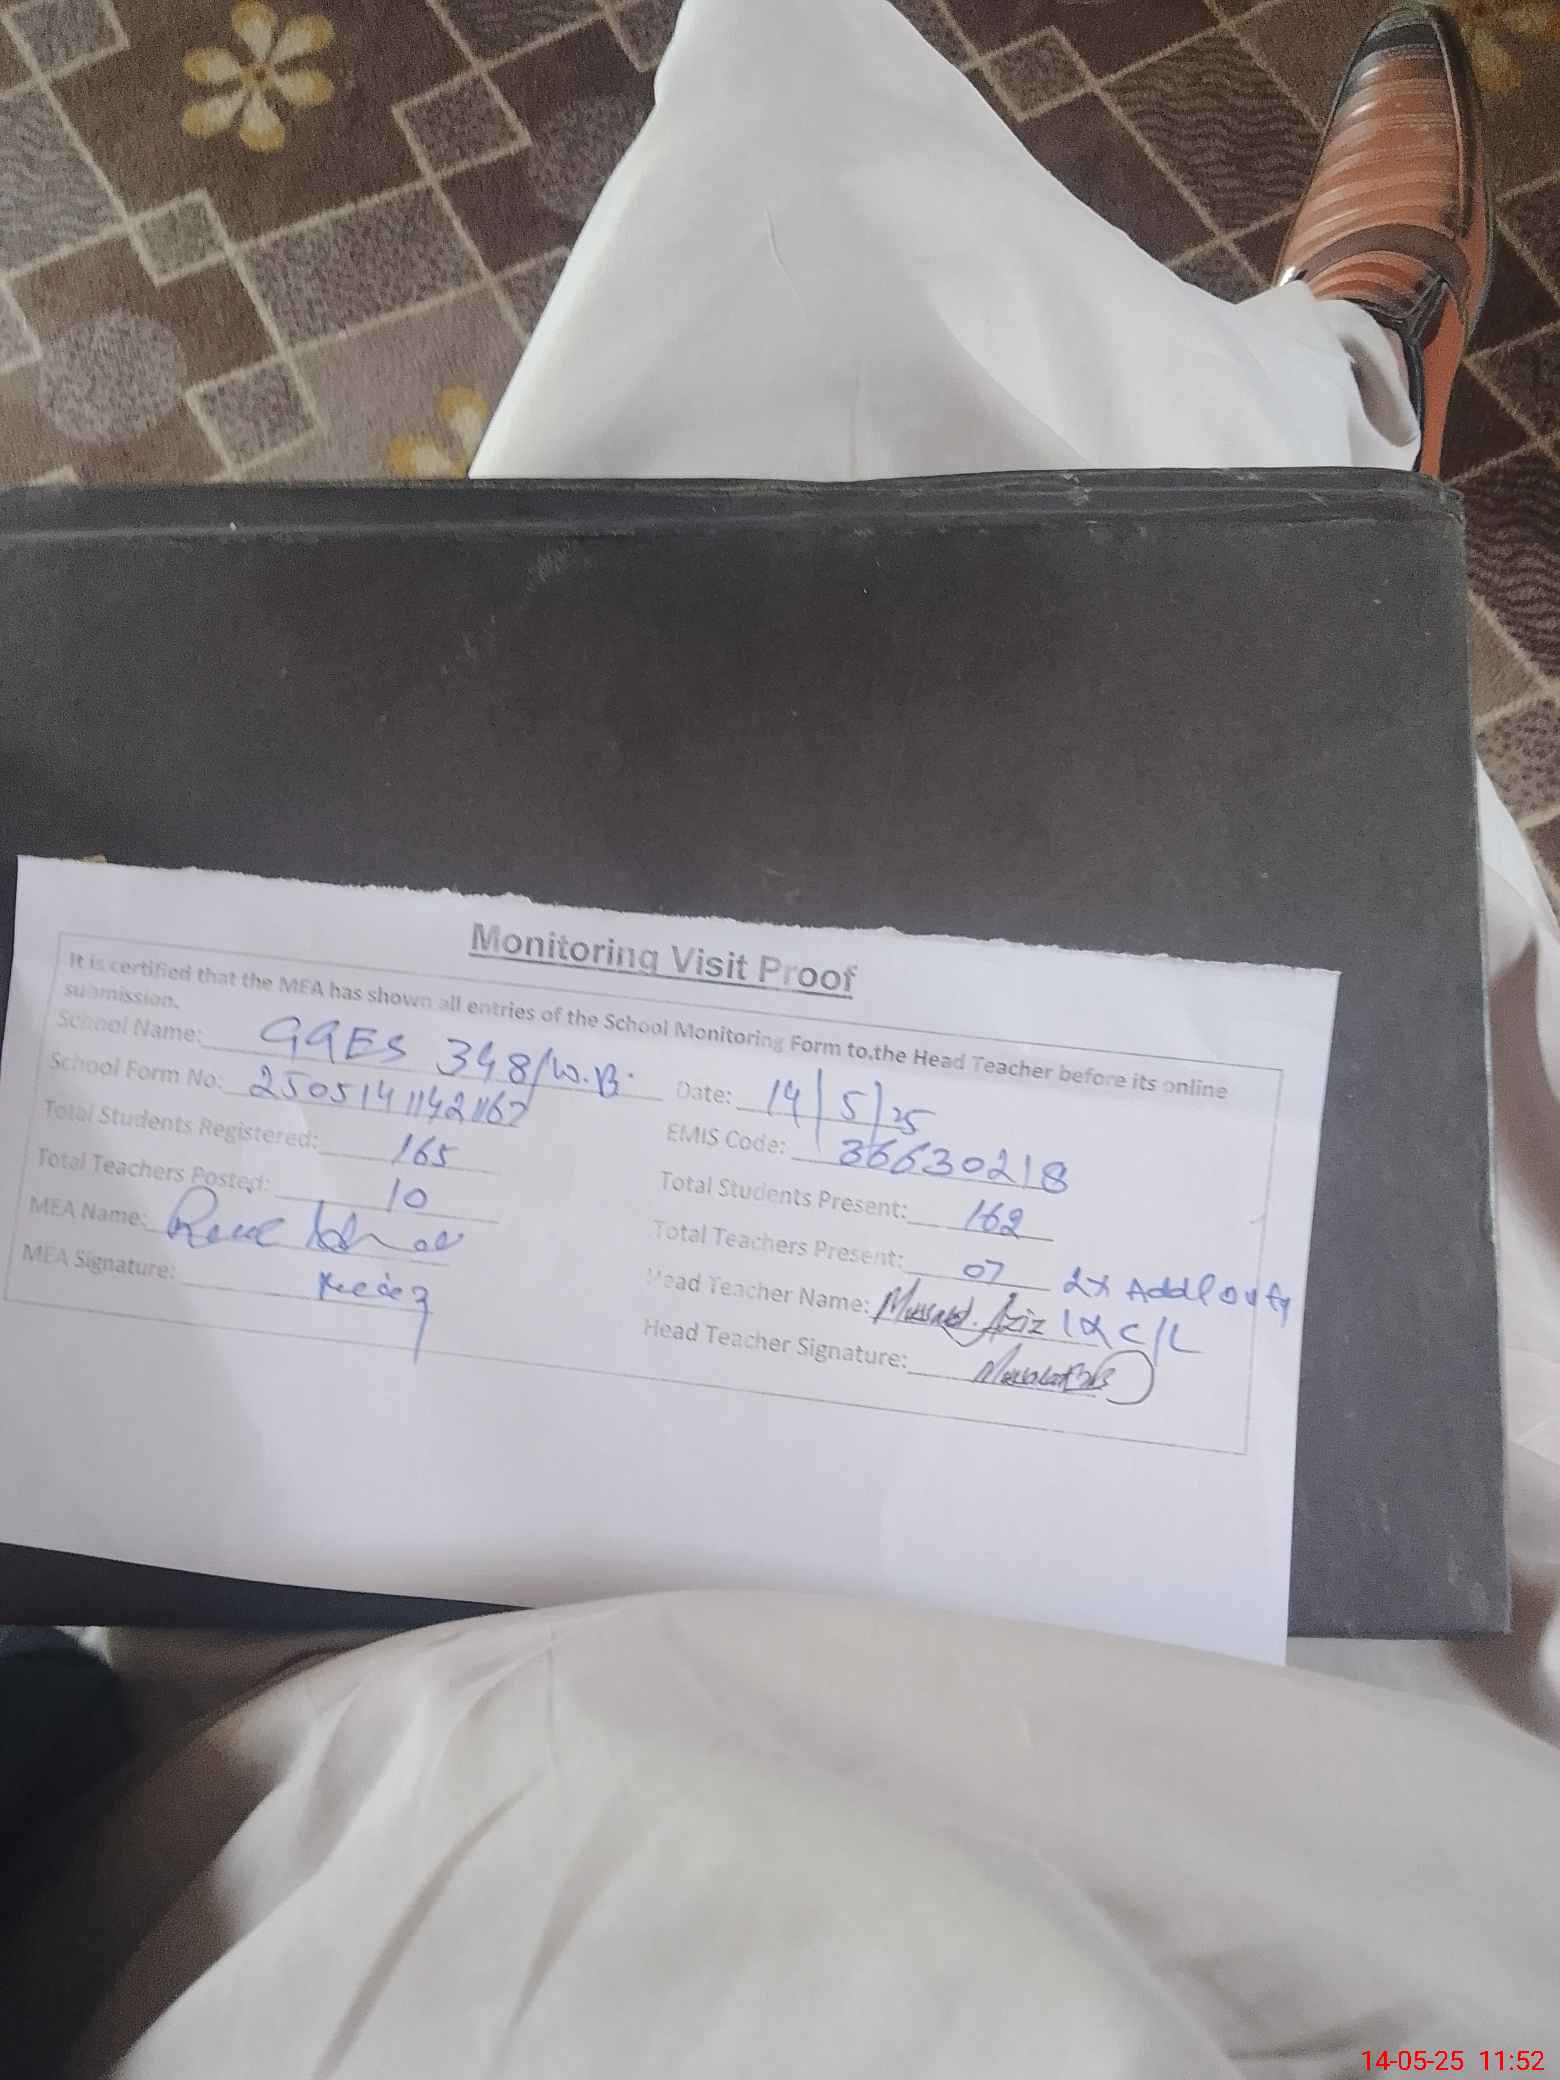 Monitoring Visit Proof
It is certified that the MEA has shown all entries of the School Monitoring Form to.the Head Teacher before its online
submission.
School Name: GGES 348/W.B. Date: 14/5/25
School Form No: EMIS Code: 36630218
Total Students Registered: 165 Total Students Present: 162
Total Teachers Posted: 10 Total Teachers Present: 07 2x Addl Duty
MEA Name: Head Teacher Name: Mussarat. Aziz 1x C/L
MEA Signature: Head Teacher Signature:
14-05-25 11:52